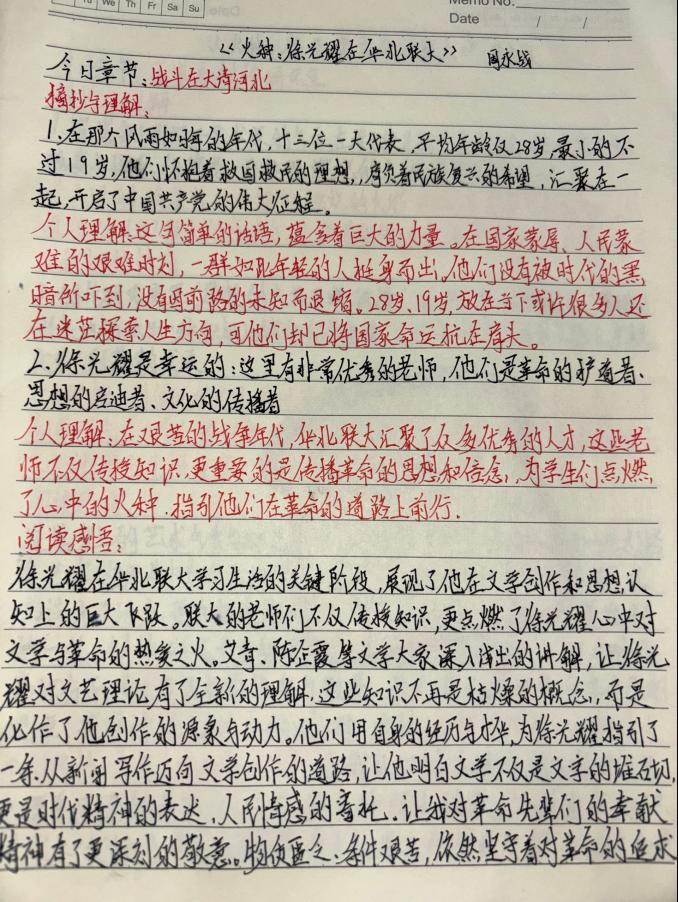 Tu We Th Fr Sa Su
Memo No.
Date / /
《火种:徐光耀在华北联大》 闻永战
今日章节:战斗在大清河北
摘抄与理解:
1.在那个风雨如晦的年代,十三位一大代表,平均年龄仅28岁,最小的不
过19岁,他们怀抱着救国救民的理想,肩负着民族复兴的希望,汇聚在一
起,开启了中国共产党的伟大征程。
个人理解:这句简单的话语,蕴含着巨大的力量。在国家蒙辱、人民蒙
难的艰难时刻,一群如此年轻的人挺身而出。他们没有被时代的黑
暗所吓到,没有因前路的未知而退缩。28岁、19岁,放在当下或许很多人还
在迷茫探索人生方向,可他们却已将国家命运抗在肩头。
2.徐光耀是幸运的:这里有非常优秀的老师,他们是革命的驴道者、
思想的启迪者、文化的传播者
个人理解:在艰苦的战争年代,华北联大汇聚了众多优秀的人才,这些老
师不仅传授知识,更重要的是传播革命的思想和信念,为学生们点燃
了心中的火种.指引他们在革命的道路上前行.
阅读感悟:
徐光耀在华北联大学习生活的关键阶段,展现了他在文学创作和思想认
知上的巨大飞跃。联大的老师们不仅传授知识,更点燃了徐光耀心中对
文学与革命的热爱之火。艾青、陈企霞等文学大家深入浅出的讲解,让徐光
耀对文艺理论有了全新的理解.这些知识不再是枯燥的概念,而是
化作了他创作的源泉与动力。他们用自身的经历与才华,为徐光耀指引了
一条从新闻写作迈向文学创作的道路,让他明白文学不仅是文字的堆石切,
更是时代精神的表达,人民情感的寄托.让我对革命先辈们的奉献
精神有了更深刻的敬意。物质匮乏、条件艰苦,依然坚守着对革命的追求